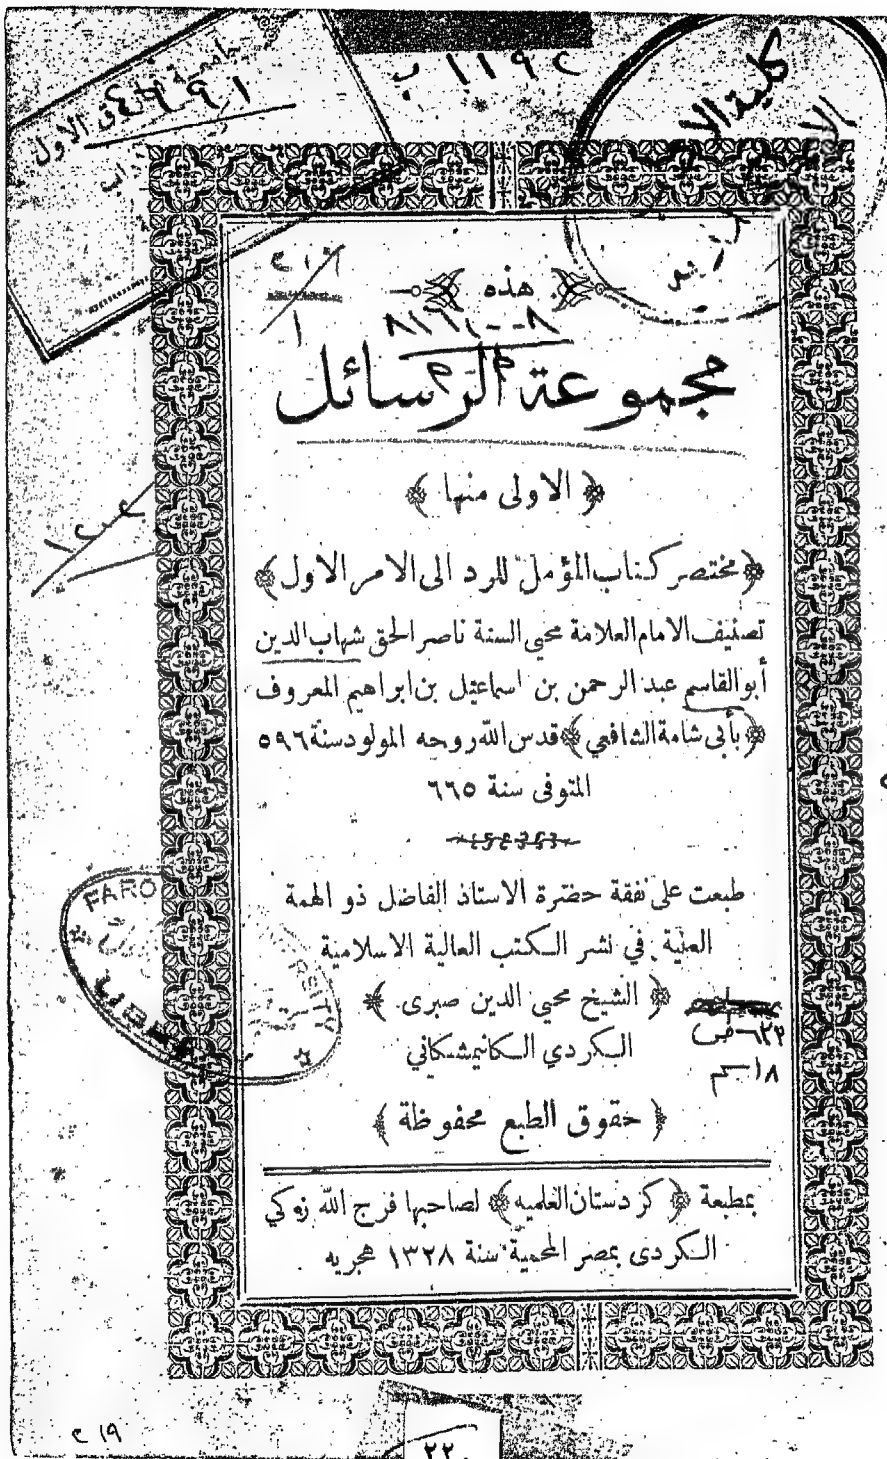 ١١٩٢ ب
كلية الا
جامعة
الاول
٤٦٩٩١
هذه
٨١٦١٠--٨
١
مجموعة الرسائل
﴿ الاولى منها ﴾
﴿ مختصر كتاب المؤمل للرد الى الامر الاول ﴾
تصنيف الامام العلامة محيي السنة ناصر الحق شهاب الدين
أبو القاسم عبد الرحمن بن اسماعيل بن ابراهيم المعروف
﴿ بأبى شامة الشافعي ﴾ قدس الله روحه المولود سنة ٥٩٦
المتوفى سنة ٦٦٥
طبعت على نفقة حضرة الاستاذ الفاضل ذو الهمة
العلية في نشر الكتب العالية الاسلامية
﴿ الشيخ محيي الدين صبرى ﴾
الكردي الكانيمشكاني
٦٢٣ ص
١٨ سم
﴿ حقوق الطبع محفوظة ﴾
بمطبعة ﴿ كردستان العلميه ﴾ لصاحبها فرج الله زكي
الكردى بمصر المحمية سنة ١٣٢٨ هجريه
FARO
RSITY
٢١٩
٢٢